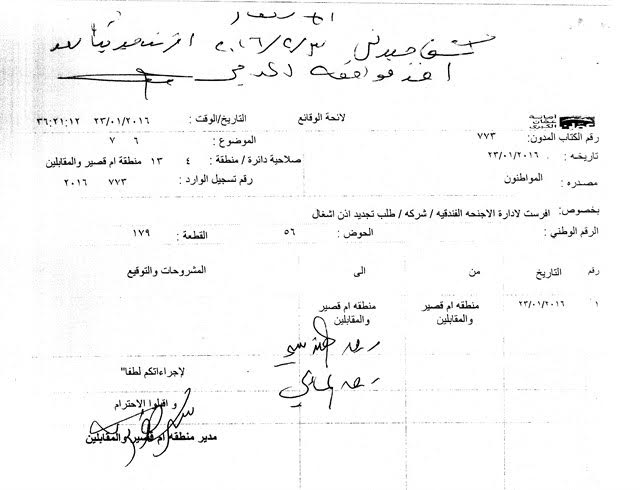 لائحة الوقائع
التاريخ/الوقت : ٢٣/٠١/٢٠١٦ ٣٦:٢١:١٢
امانة عمان الكبرى
رقم الكتاب المدون: ٧٧٣ الموضوع : ٦ ٧
تاريخه : ٢٣/٠١/٢٠١٦ صلاحية دائرة / منطقة : ٤ ١٣ منطقة ام قصير والمقابلين
مصدره : المواطنون رقم تسجيل الوارد : ٧٧٣ ٢٠١٦
بخصوص : افرست لادارة الاجنحه الفندقيه / شركه / طلب تجديد اذن اشغال
الرقم الوطني : الحوض : ٥٦ القطعة : ١٧٩
رقم التاريخ من الى المشروحات والتوقيع
١ ٢٣/٠١/٢٠١٦ منطقه ام قصير منطقه ام قصير
والمقابلين والمقابلين
لاجراءاتكم لطفا"
و اقبلوا الاحترام
مدير منطقه ام قصير والمقابلين